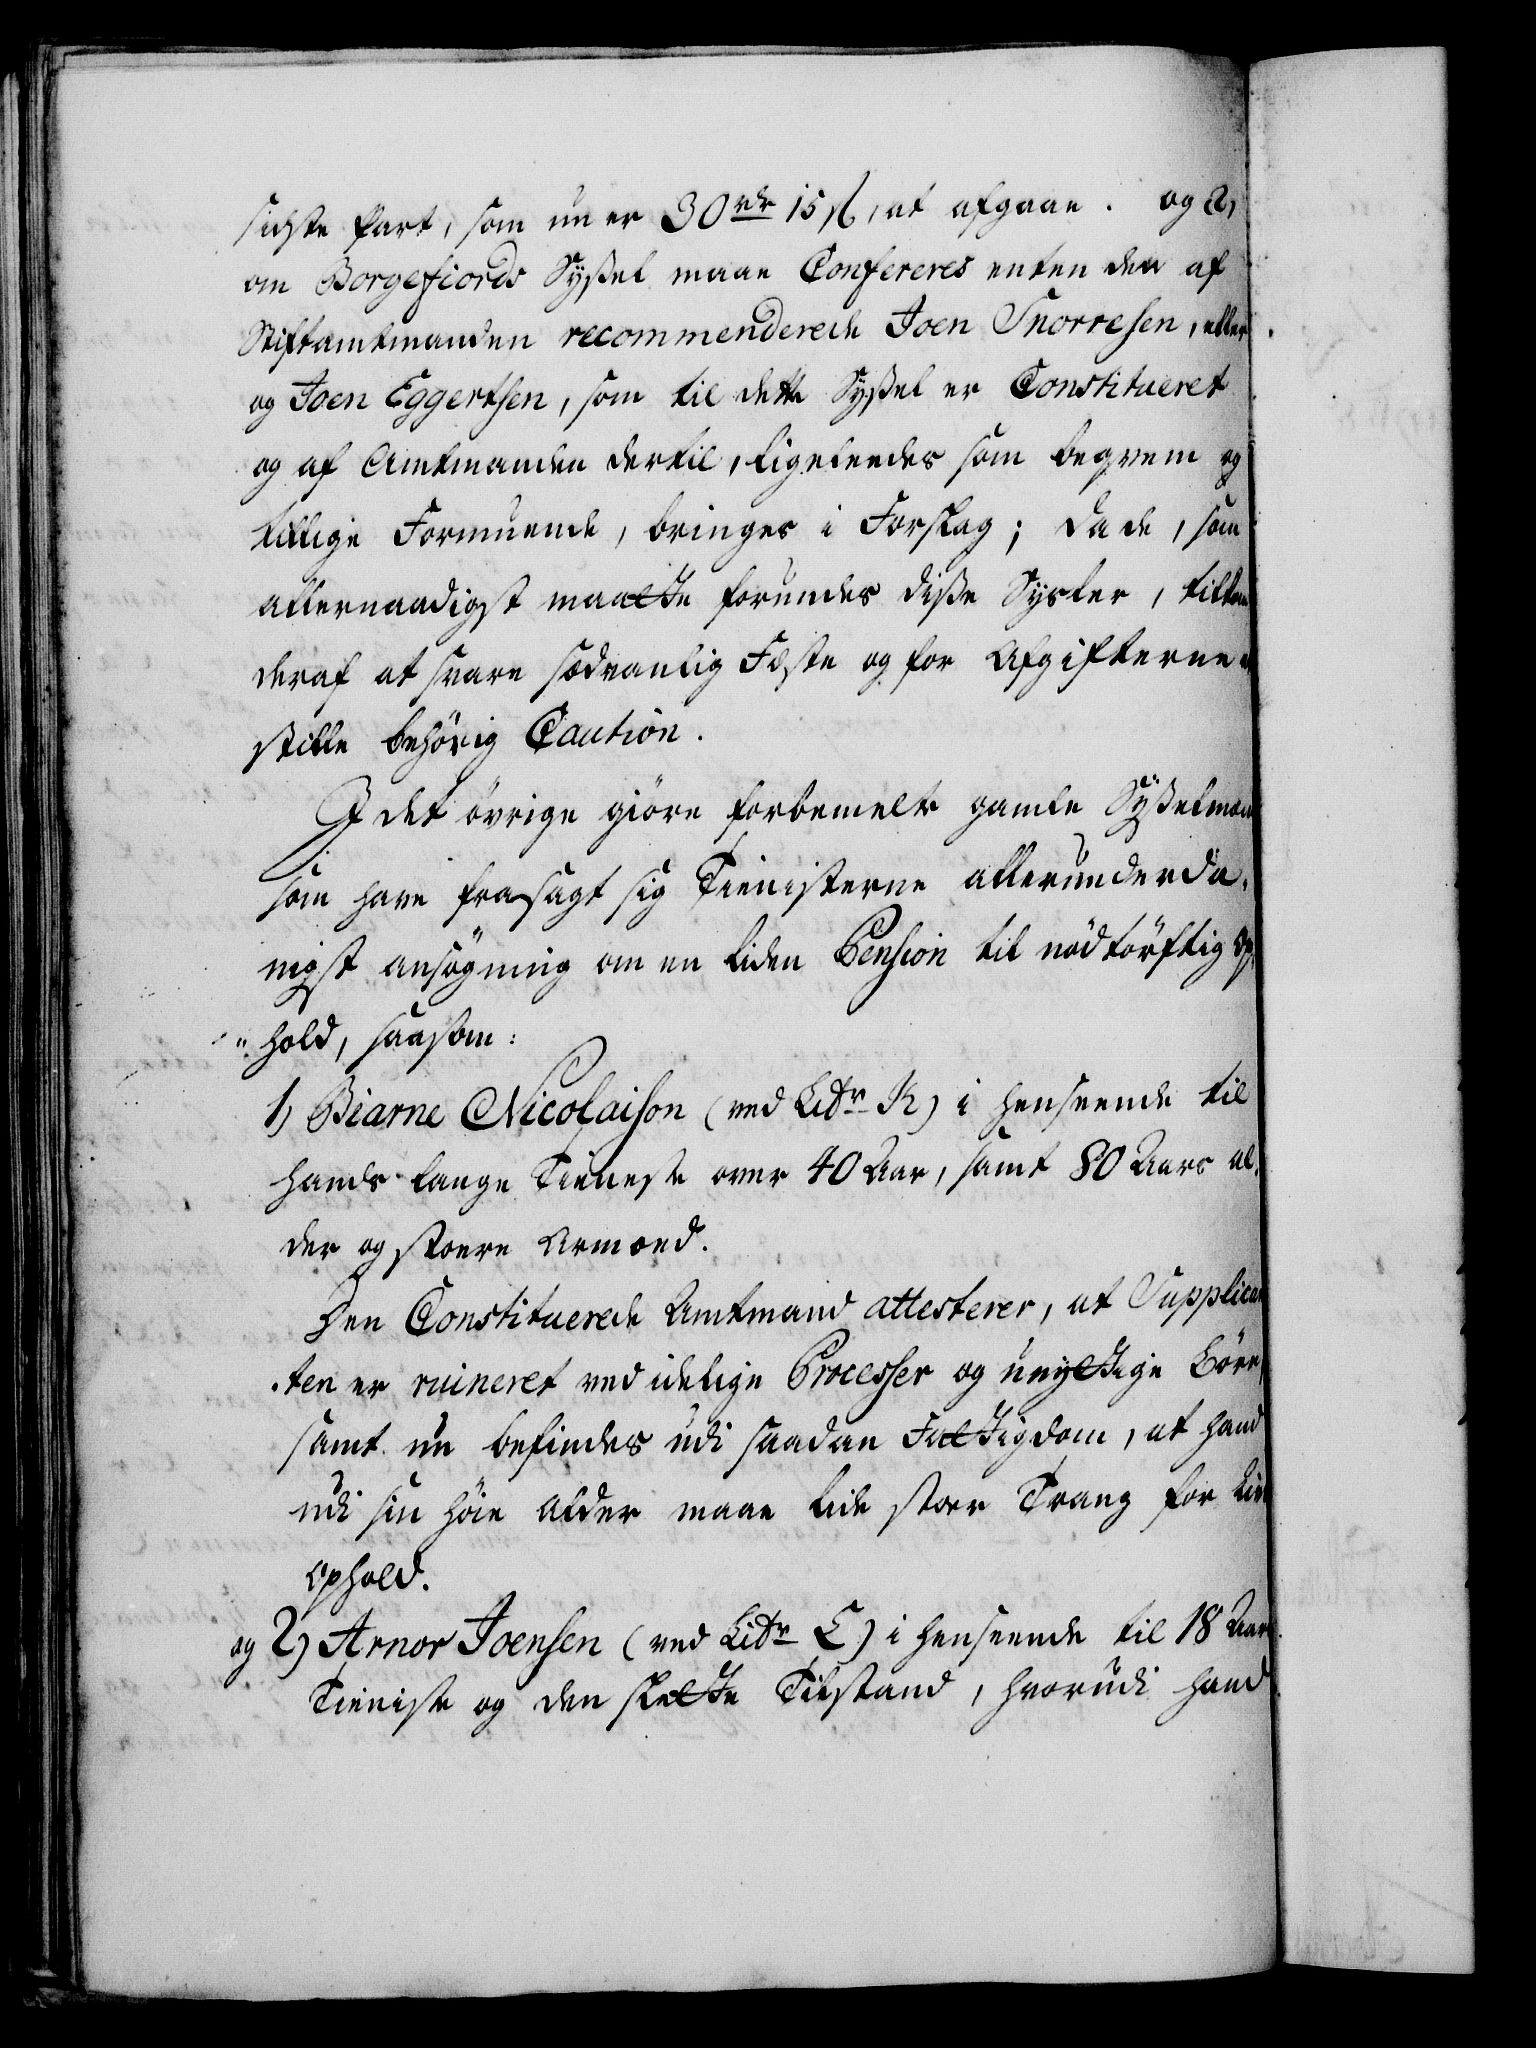 sidste Part, som nu er 30 rdr 15 ß, at afgaae. og 2,
om Borgefiords Syssel maae Confereres enten den af
Stiftamtmanden recommenderede Joen Snorresen, eller
og Joen Eggertsen, som til dette Syssel er Constitueret
og af Amtmanden dertil, ligeledes som beqvem og
tillige Formuende, bringes i Forslag; da de, som
allernaadigst maatte forundes disse Sysler, 
deraf at svare sædvanlig Fæste og for Afgifterne
stille behörig Caution.
I det övrige giöre forbemelte gamle Sysselmænd
som have frasagt sig Tienisterne allerunderda¬
nigst ansögning om en liden Pension til nödtörftig Op¬
hold, saasom:
1) Biarne Nicolaison (ved Litr K) i henseende til
hands lange Tieneste over 40 Aar, samt 80 Aars al¬
der og stoere Armoed.
Den Constituerede Amtmand attesterer, at Supplican
ten er ruineret ved idelige Processer og unyttige Börn,
samt nu befindes udi saadan Fattigdom, at hand
udi sin höie Alder maae lide stoer Trang for Livs
Ophold.
og 2) Arnor Joensen (ved Litr L) i henseende til 18 Aars
Tieniste og den slette Tilstand, hvorudi hand